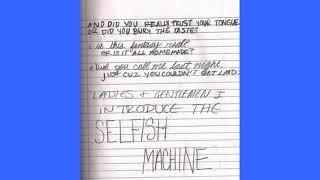 AND DID YOU REALLY TRUST YOUR TONGUE
OR DID YOU BURY THE TASTE?
is this fantasy real?
OR IS IT ALL HOMEMADE?
Did you call me last night,
JUST CUZ YOU COULDN'T GET LAID?
LADIES & GENTLEMEN I
INTRODUCE THE
SELFISH
MACHINE